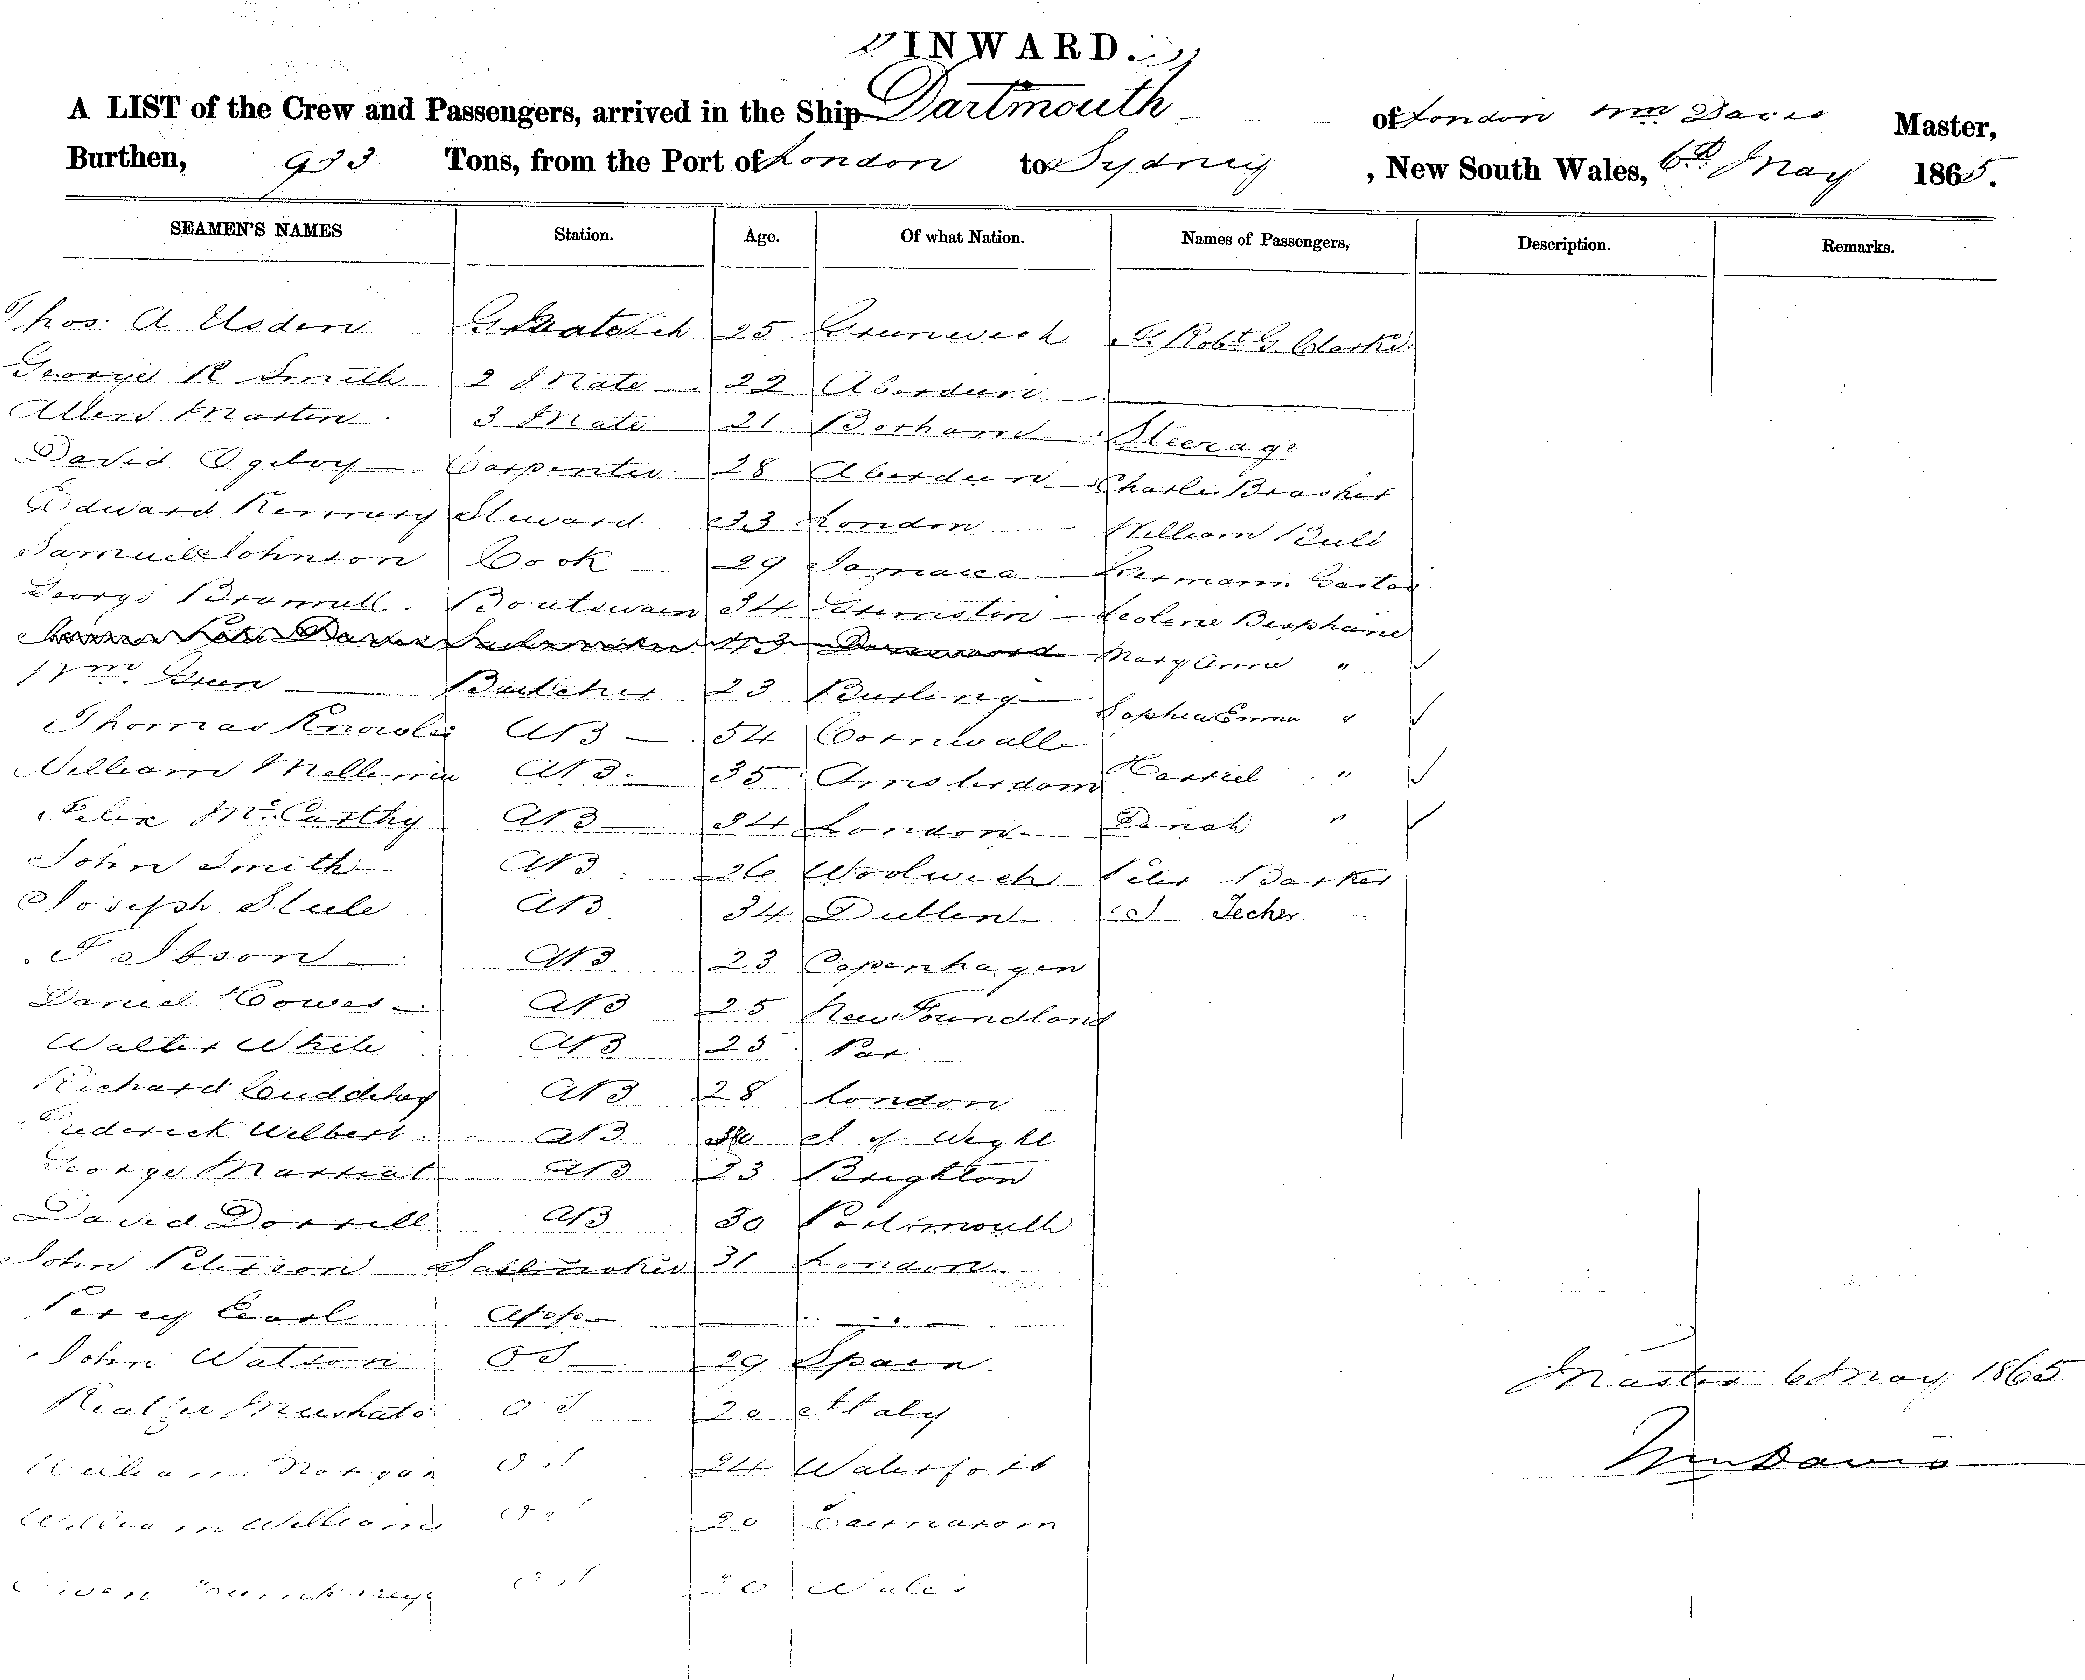 INWARD.
A LIST of the Crew and Passengers, arrived in the Ship Dartmouth of London Wm Davis Master,
Burthen, 933 Tons, from the Port of London to Sydney, New South Wales, 6th May 1865.
SEAMEN'S NAMES Station. Age. Of what Nation. Names of Passengers, Description. Remarks.
Thos. A Usden Mate 25 Greenwich Robt G Clarke
George R Smith 2 Mate 22 Aberdeen
Allen Martin 3 Mate 21 Steerage
David Ogilvy Carpenter 28 Aberdeen Charles Brasher
Edward Steward 33 London William Bull
Samuel Johnson Cook 29 Jamaica Hermann
George Boatswain 34
43 Mary Anne "
Wm. Green Butcher 23 Sophia Emma "
Thomas Knowles AB 54 Cornwall
William AB 35 Amsterdam Harriet "
Felix McCarthy AB 34 London Dinah "
John Smith AB 26 Woolwich Peter Barker
Joseph Steele AB 34 Dublin Techer
F Ibson AB 23 Copenhagen
Daniel Cowes AB 25 New Foundland
Walter White AB 25
Richard Cuddehay AB 28 London
Frederick Wilbert AB I of Wight
George Marriat AB 23 Brighton
David Dorrell AB 30 Portsmouth
John Peterson Sailmaker 31 London
Percy Earl App
John Watson OS 29 Spain
OS 20 Italy
William Morgan OS 24 Waterford
William Williams OS 20 Carnarvon
Owen OS 20 Wales
Master 6 May 1865
Wm Davis